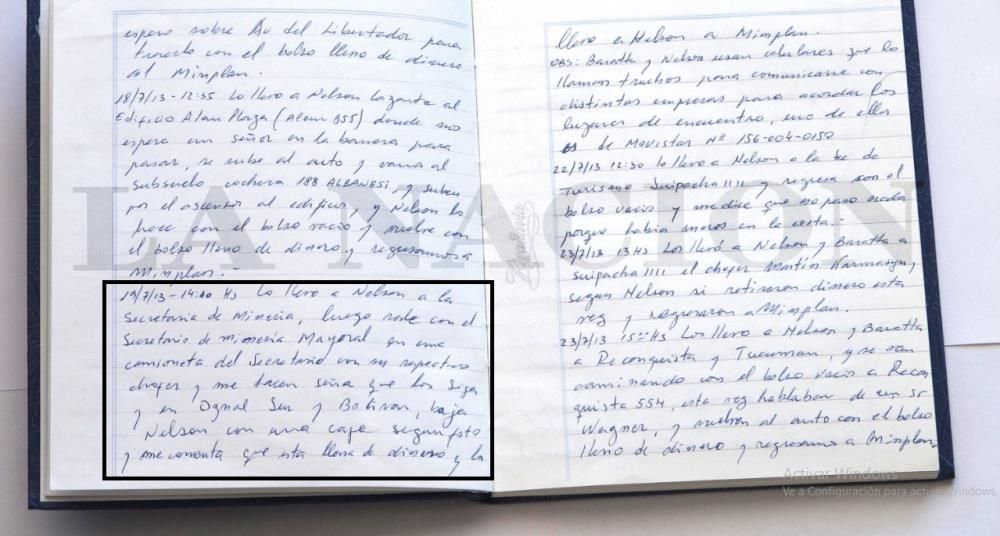 espera sobre Av del Libertador para
traerlo con el bolso lleno de dinero
al Minplan.
18/7/13 - 12:35 Lo llevo a Nelson Lazarte al
Edificio Alan Plaza (Alem 855) donde nos
espera un señor en la barrera para
pasar, se sube al auto y vamos al
subsuelo cochera 188 ALBANESI y suben
por el ascensor al edificio, y Nelson lo
hace con el bolso vacio y vuelve con
el bolso lleno de dinero y regresamos a
Minplan. -
19/7/13 - 14:00 Hs Lo llevo a Nelson a la
Secretaria de Mineria, luego sale con el
Secretario de mineria Mayoral en una
camioneta del Secretario con su respectivo
chofer y me hacen seña que los siga
y en Diagonal Sur y Bolivar, baja
Nelson con una caja segun foto
y me comenta que esta llena de dinero y la
llevo a Nelson a Minplan.
OBS: Baratta y Nelson usan celulares que lo
llaman truchos para comunicarse con
distintas empresas para acordar los
lugares de encuentro, uno de ellos
es de Movistar Nº 156-004-0152
22/7/13 12:30 lo llevo a Nelson a la Sec de
Turismo Suipacha 1111 y regresa con el
bolso vacio y me dice que no paso nada
porque habia moros en la costa. -
23/7/13 13 Hs Los llevó a Nelson y Baratta a
Suipacha 1111 el chofer Martín
segun Nelson si retiraron dinero esta
vez y regresaron a Minplan.
23/7/13 15 Hs Los llevo a Nelson y Baratta
a Reconquista y Tucuman, y se van
caminando con el bolso vacio a Recon
quista 554, esta vez hablaban de un Sr
Wagner, y vuelven al auto con el bolso
lleno de dinero y regresamos a Minplan
LA NACION
Activar Windows
Ve a Configuración para activar Windows.